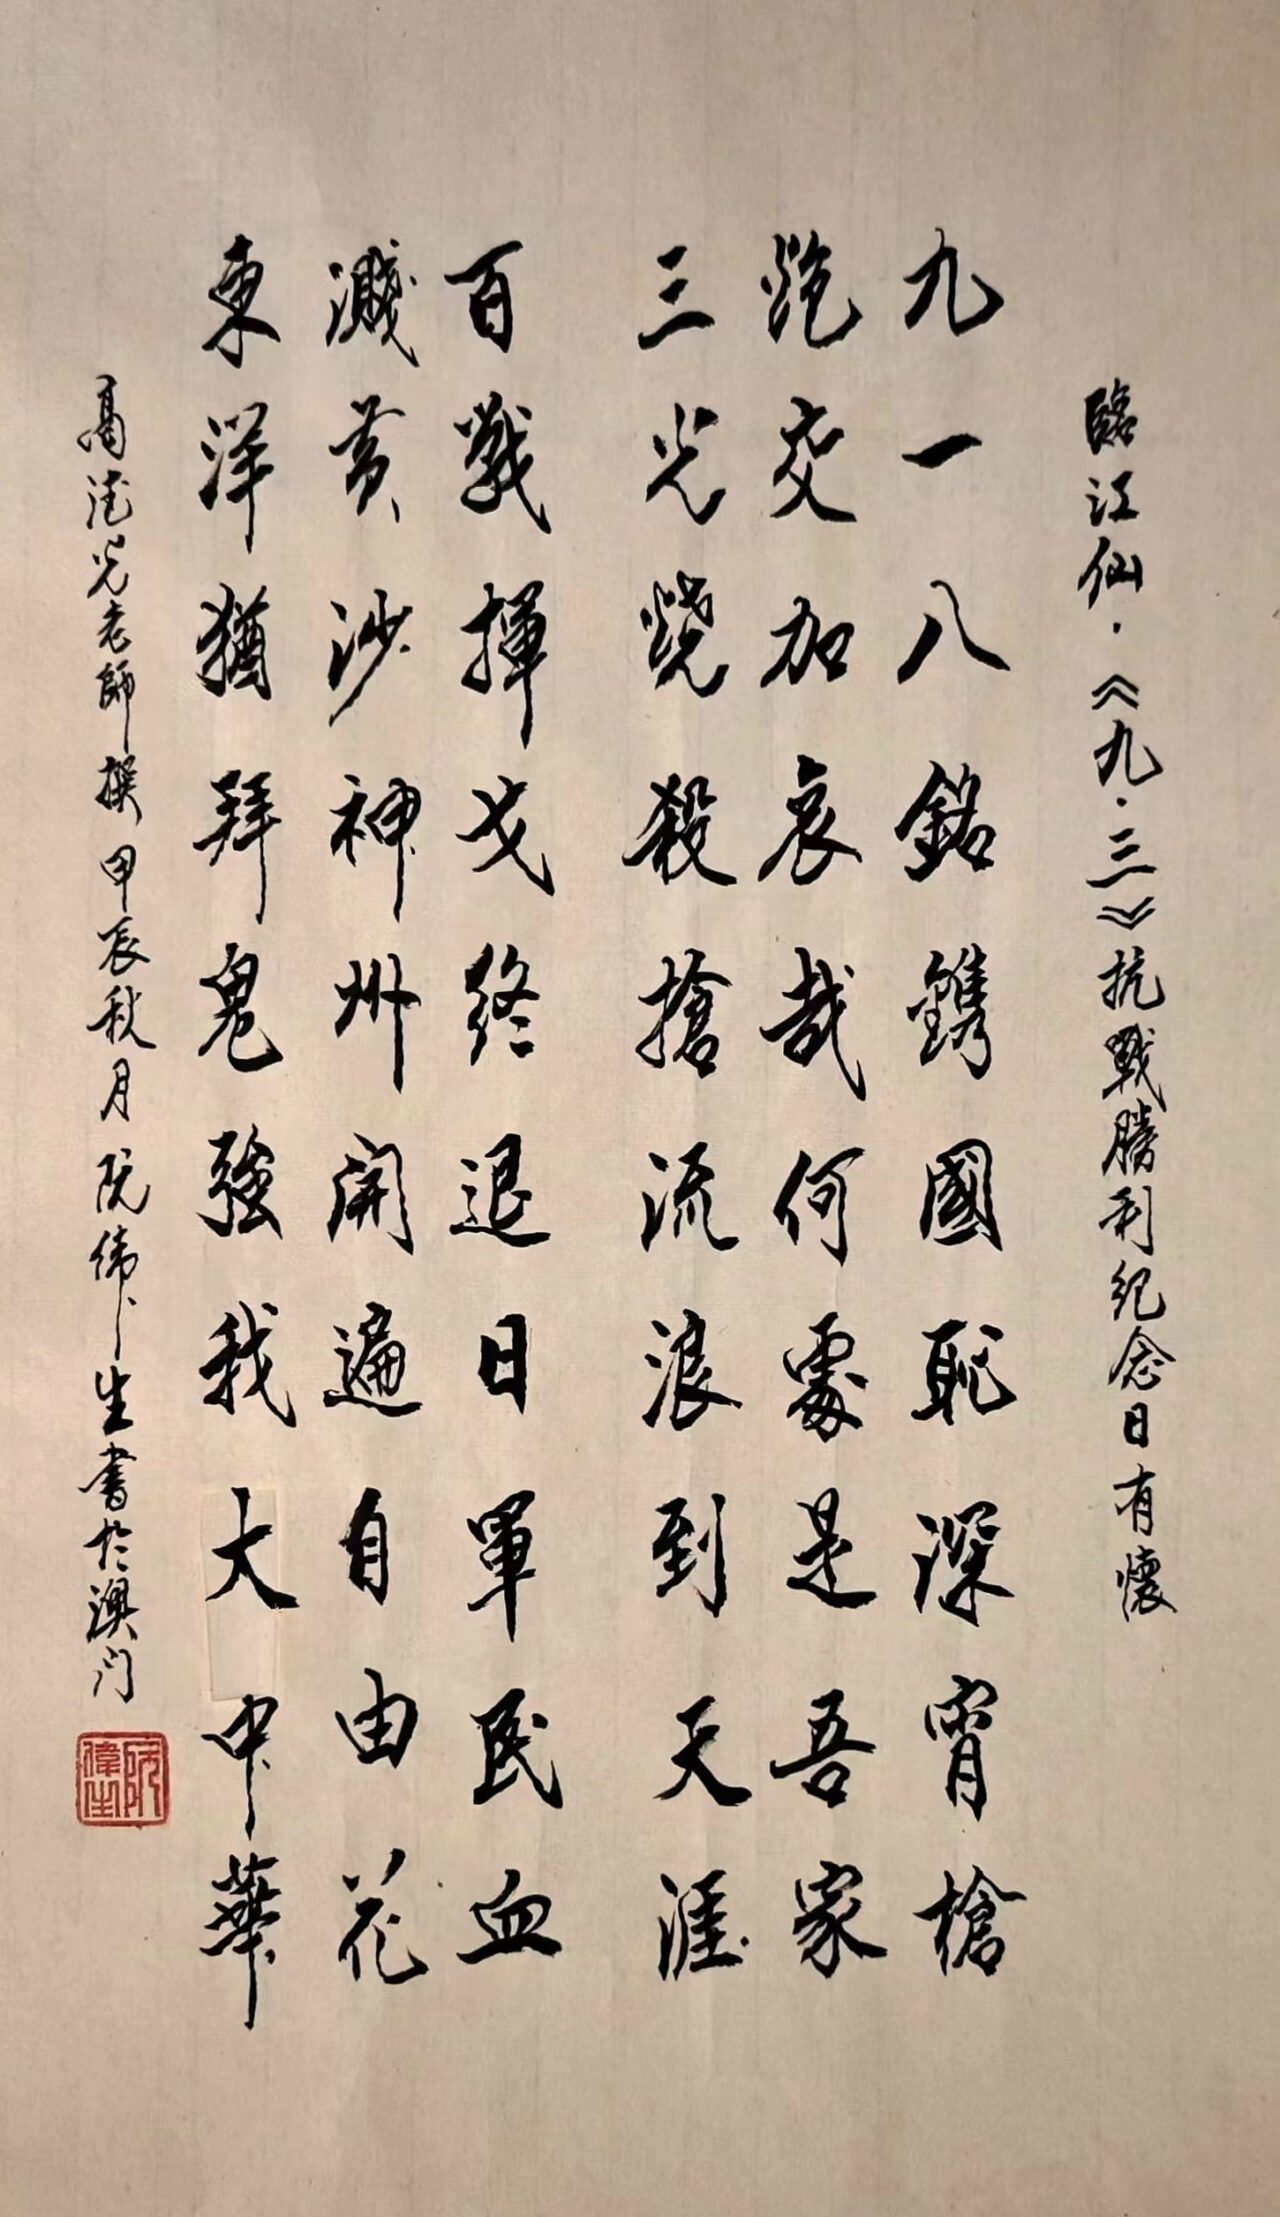 臨江仙·《九·三》抗戰勝利紀念日有懷
九一八銘鐫國恥深宵槍
炮交加哀哉何處是吾家
三光燒殺搶流浪到天涯
百戰揮戈終退日軍民血
濺黃沙神州開遍自由花
東洋猶拜鬼強我大中華
高德光老師撰甲辰秋月阮偉生書於澳门
阮偉生